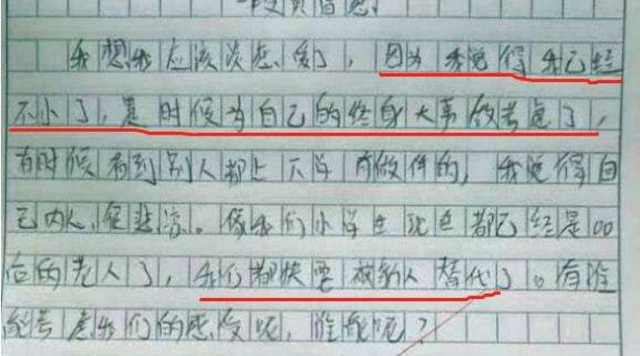 我想我应该谈恋爱了，因为我觉得我已经
不小了，是时候为自己的终身大事做考虑了，
有时候看到别人都上下学有做伴的，我觉得自
己内人，很悲凉。像我们小学也现也都已经是00
后的老人了，我们都快要被新人替代了。有谁
能考虑我们的感受呢，谁能呢？